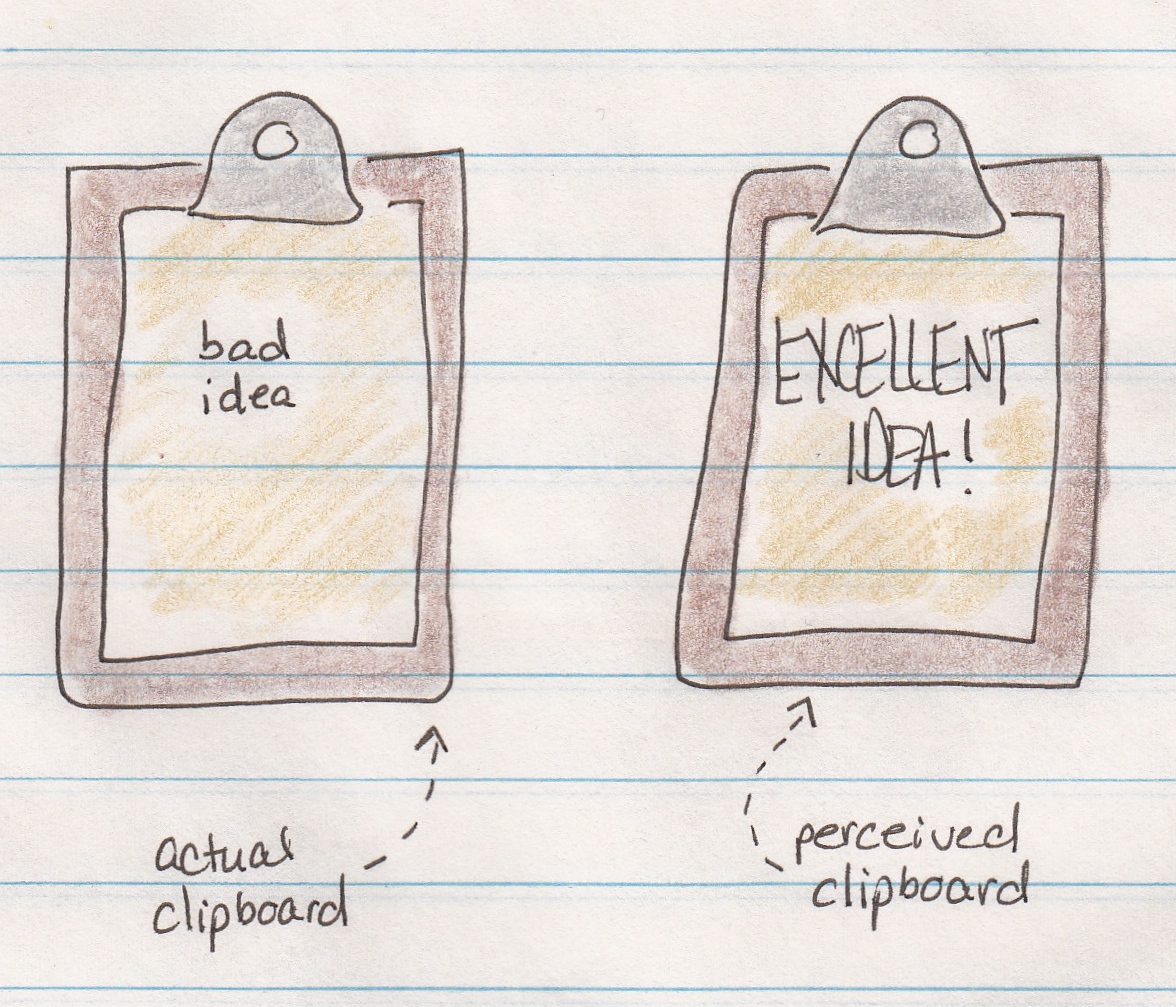 bad
idea
actual
clipboard
EXCELLENT
IDEA!
perceived
clipboard